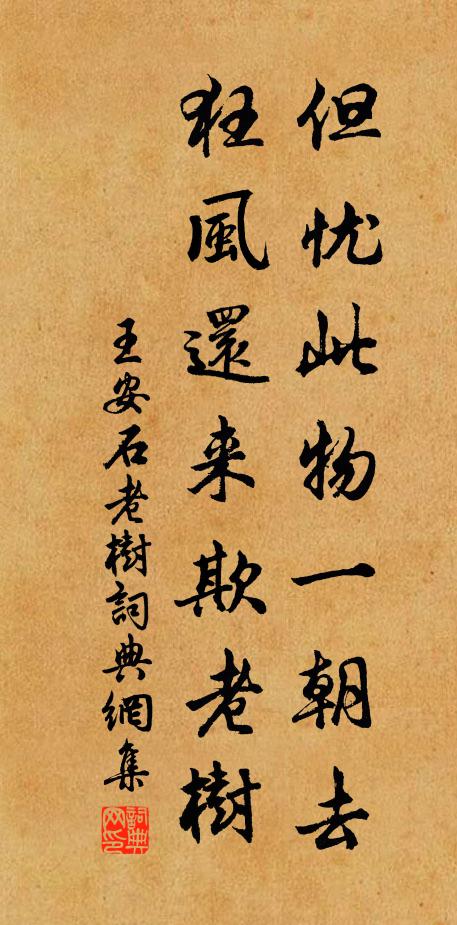 但忧此物一朝去
狂風還来欺老樹
王安石老樹詞典網集
詞典网印